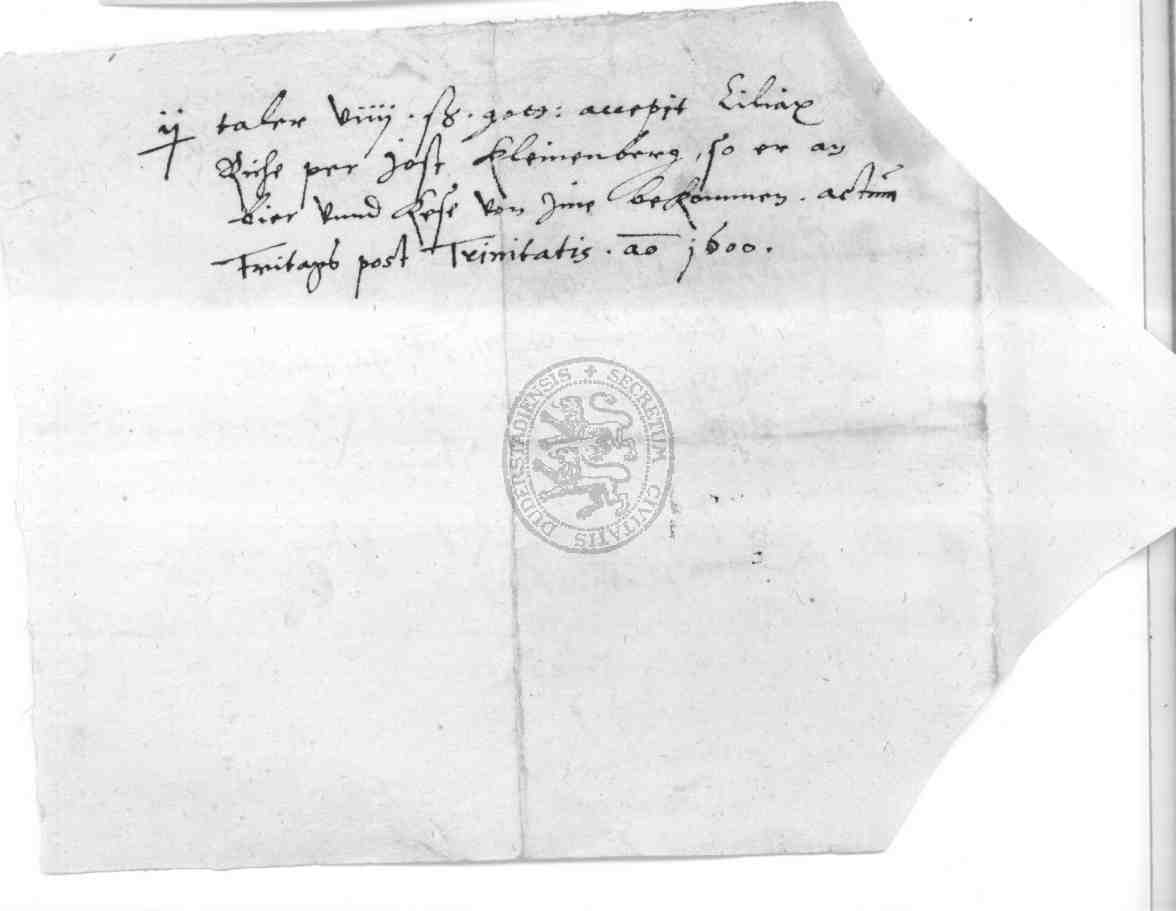 ij taler viiij . ß . gott: accepit Ciliax
Riche per Jost Kleinenberg, so er an
bier vnnd Kese von Jme bekommen . actum
Freitags post Trinitatis . ao 1600 .
SECRETUM CIVITATIS DUDERSTADIENSIS +